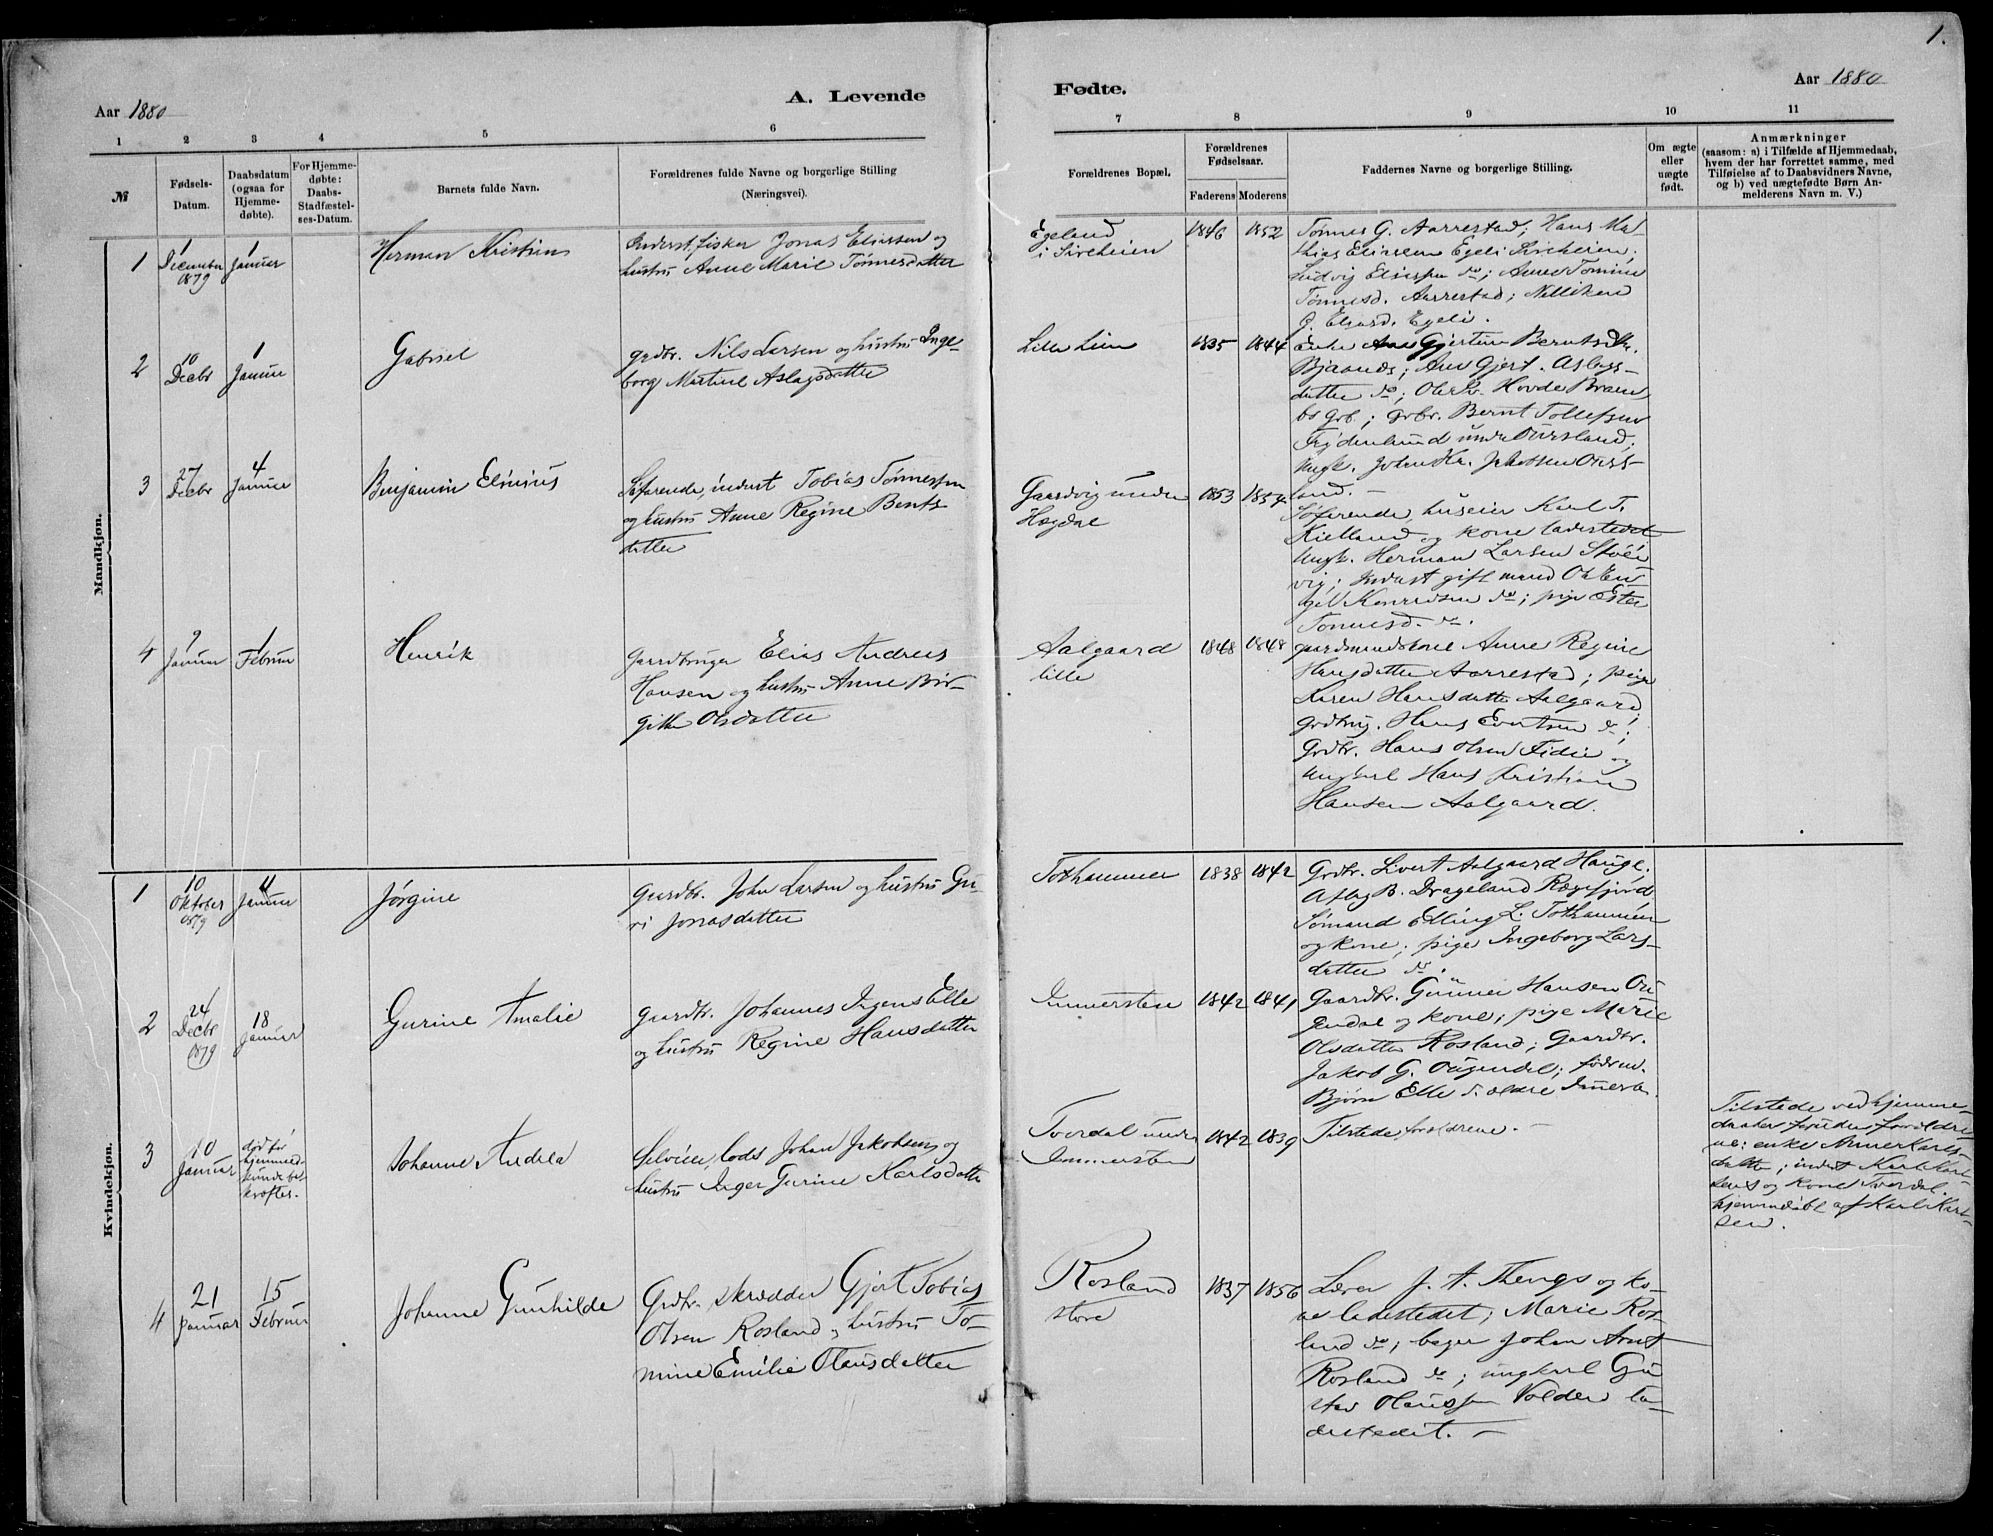 1.
Aar 1880
A. Levende
Fødte.
Aar 1880
1 2 3 4 5 6 7 8 9 10 11
№
Fødsels-
Datum.
Daabsdatum
(ogsaa for
Hjemme-
døbte).
For Hjemme-
døbte:
Daabs-
Stadfæstel-
ses-Datum.
Barnets fulde Navn.
Forældrenes fulde Navne og borgerlige Stilling
(Næringsvei).
Forældrenes Bopæl.
Forældrenes
Fødselsaar.
Faderens Moderens
Faddernes Navne og borgerlige Stilling.
Om ægte
eller
uægte
født.
Anmærkninger
(saasom: a) i Tilfælde af Hjemmedaab,
hvem der har forrettet samme, med
Tilføielse af to Daabsvidners Navne,
og b) ved uægtefødte Børn An-
melderens Navn m. V.)
Mandkjøn.
1
1
December
1879
1
Januar
Herman Kristian
Inderst, fisker Jonas Eliassen og
hustru Anne Marie Tønnesdatter
Egeland
i Sireheien
1846 1852
Tønnes G. Aarrestad; Hans Ma-
thias Eliassen Egeli Sireheien;
Ludvig Eliassen do; Anne Tomine
Tønnesd. Aarrestad;
Egeli.
2
10
Decbr
1
Januar
Gabriel
grdbr. Nils Larsen og hustru Inge-
borg Martine Aslagsdatter
Lille Lien
1835 1844
Enke Gjertine Berntsdtr.
datter do; Hovde
grb.; grbr. Bernt Tollefsen
Frydenlund under Ouesland.
Ungk. Johan Kr. Jakobsen Oues-
land. —
3
27
Decbr
4
Januar
Benjamin Elinius
Søfarende, inderst Tobias Tønnessen
og hustru Anne Regine Bents-
datter
Gaardvig under
Hægdal
1853 1854
Søfarende, huseier Karl T.
Kielland og kone ladestedet
Ungk. Herman Larsen
vig; Inderst gift mand
do; pige Ester
Tønnesd. do.
4
9
Januar
1
Februar
Henrik
Gaardbruger Elias Andreas
Hansen og hustru Anne Bir-
gitte Olsdatter
Aalgaard
lille
1848 1848
gaardmandskone Anne Regine
Hansdatter Aarrestad; pige
Karen Hansdatter Aalgaard;
grdbrug. Hans Evertsen do;
Grdbr. Hans Olsen Fidie og
Ungkarl Hans Kristian
Hansen Aalgaard.
Kvindekjøn.
1
10
Oktober
1879
11
Januar
Jørgine
gaardbr. John Larsen og hustru Gu-
ri Jonasdatter
Tothammer
1838 1842
Grdbr. Sivert Aalgaard Hauge.
Aslag B. Drageland Rægefjord
Sømand Elling L. Tothammer
og kone; pige Ingeborg Lars-
datter do.
2
24
Decbr
1879
18
Januar
Gurine Amalie
gaardbr. Johannes Jgens Elle
og hustru Regine Hansdatter
Immersten
1842 1841
Gaardbr. Gunner Hansen Ou-
gendal og kone; pige Marie
Olsdatter Rosland; Gaardbr.
Jakob G. Ougendal;
Bjørn Elle
3
10
Januar
død før
hjemmed-
kunde be-
kræftes.
Johanne Andrea
Selveier, lods Johan Jakobsen og
hustru Inger Gurine Karlsdatter
Tverdal under
Immersten
1842 1839
Tilstede, forældrene. —
Tilstede ved hjemme-
daaben foruden forældre-
ne: enke Anne Karls-
datter; inderst Karl Karl-
sen og kone Tverdal.
hjemmedøbt af Karl Karl-
sen.
4
21
Januar
15
Februar
Johanne Gunhilde
Grdbr. skrædder Gjert Tobias
Olsen Rosland og hustru To-
mine Emilie Olausdatter
Rosland
store
1837 1856
Lærer J. A. Thengs og ko-
ne ladestedet; Marie Ros-
land do; bager Johan Arnt
Rosland do; ungkarl Gu-
stav Olaussen Volden la-
destedet. —